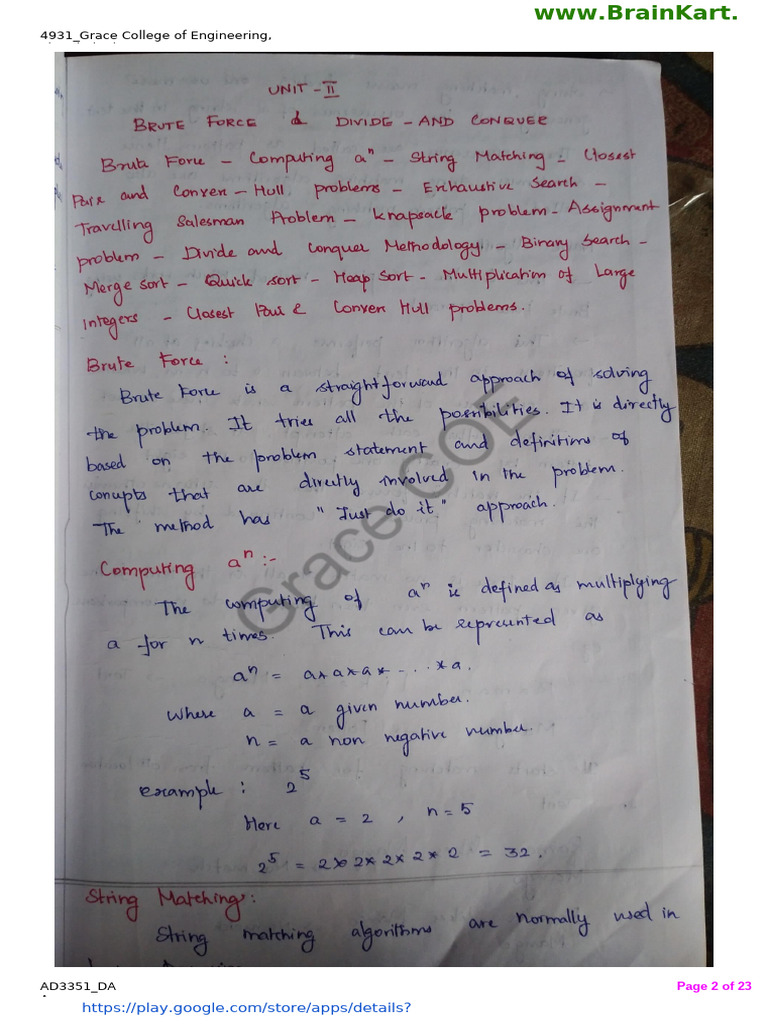 www.BrainKart.
4931_Grace College of Engineering,
UNIT - II
BRUTE FORCE & DIVIDE - AND CONQUER
Brute Force - Computing aⁿ - String Matching - Closest
Pair and Conven - Hull problems - Exhaustive Search -
Travelling Salesman Problem - Knapsack problem - Assignment
problem - Divide and Conquer Methodology - Binary Search -
Merge sort - Quick sort - Heap Sort - Multiplication of Large
Integers - Closest Pair & Conven Hull problems.
Brute Force :
Brute Force is a straightforward approach of solving
the problem. It tries all the possibilities. It is directly
based on the problem statement and definitions of
concepts that are directly involved in the problem.
The method has "Just do it" approach.
Computing aⁿ :-
The computing of aⁿ is defined as multiplying
a for n times. This can be represented as
aⁿ = a*a*a*-...*a.
Where a = a given number.
n = a non negative number.
example : 2⁵
Here a = 2 , n = 5
2⁵ = 2*2*2*2*2 = 32.
String Matching :
String matching algorithms are normally used in
Grace COE
AD3351_DA
Page 2 of 23
https://play.google.com/store/apps/details?